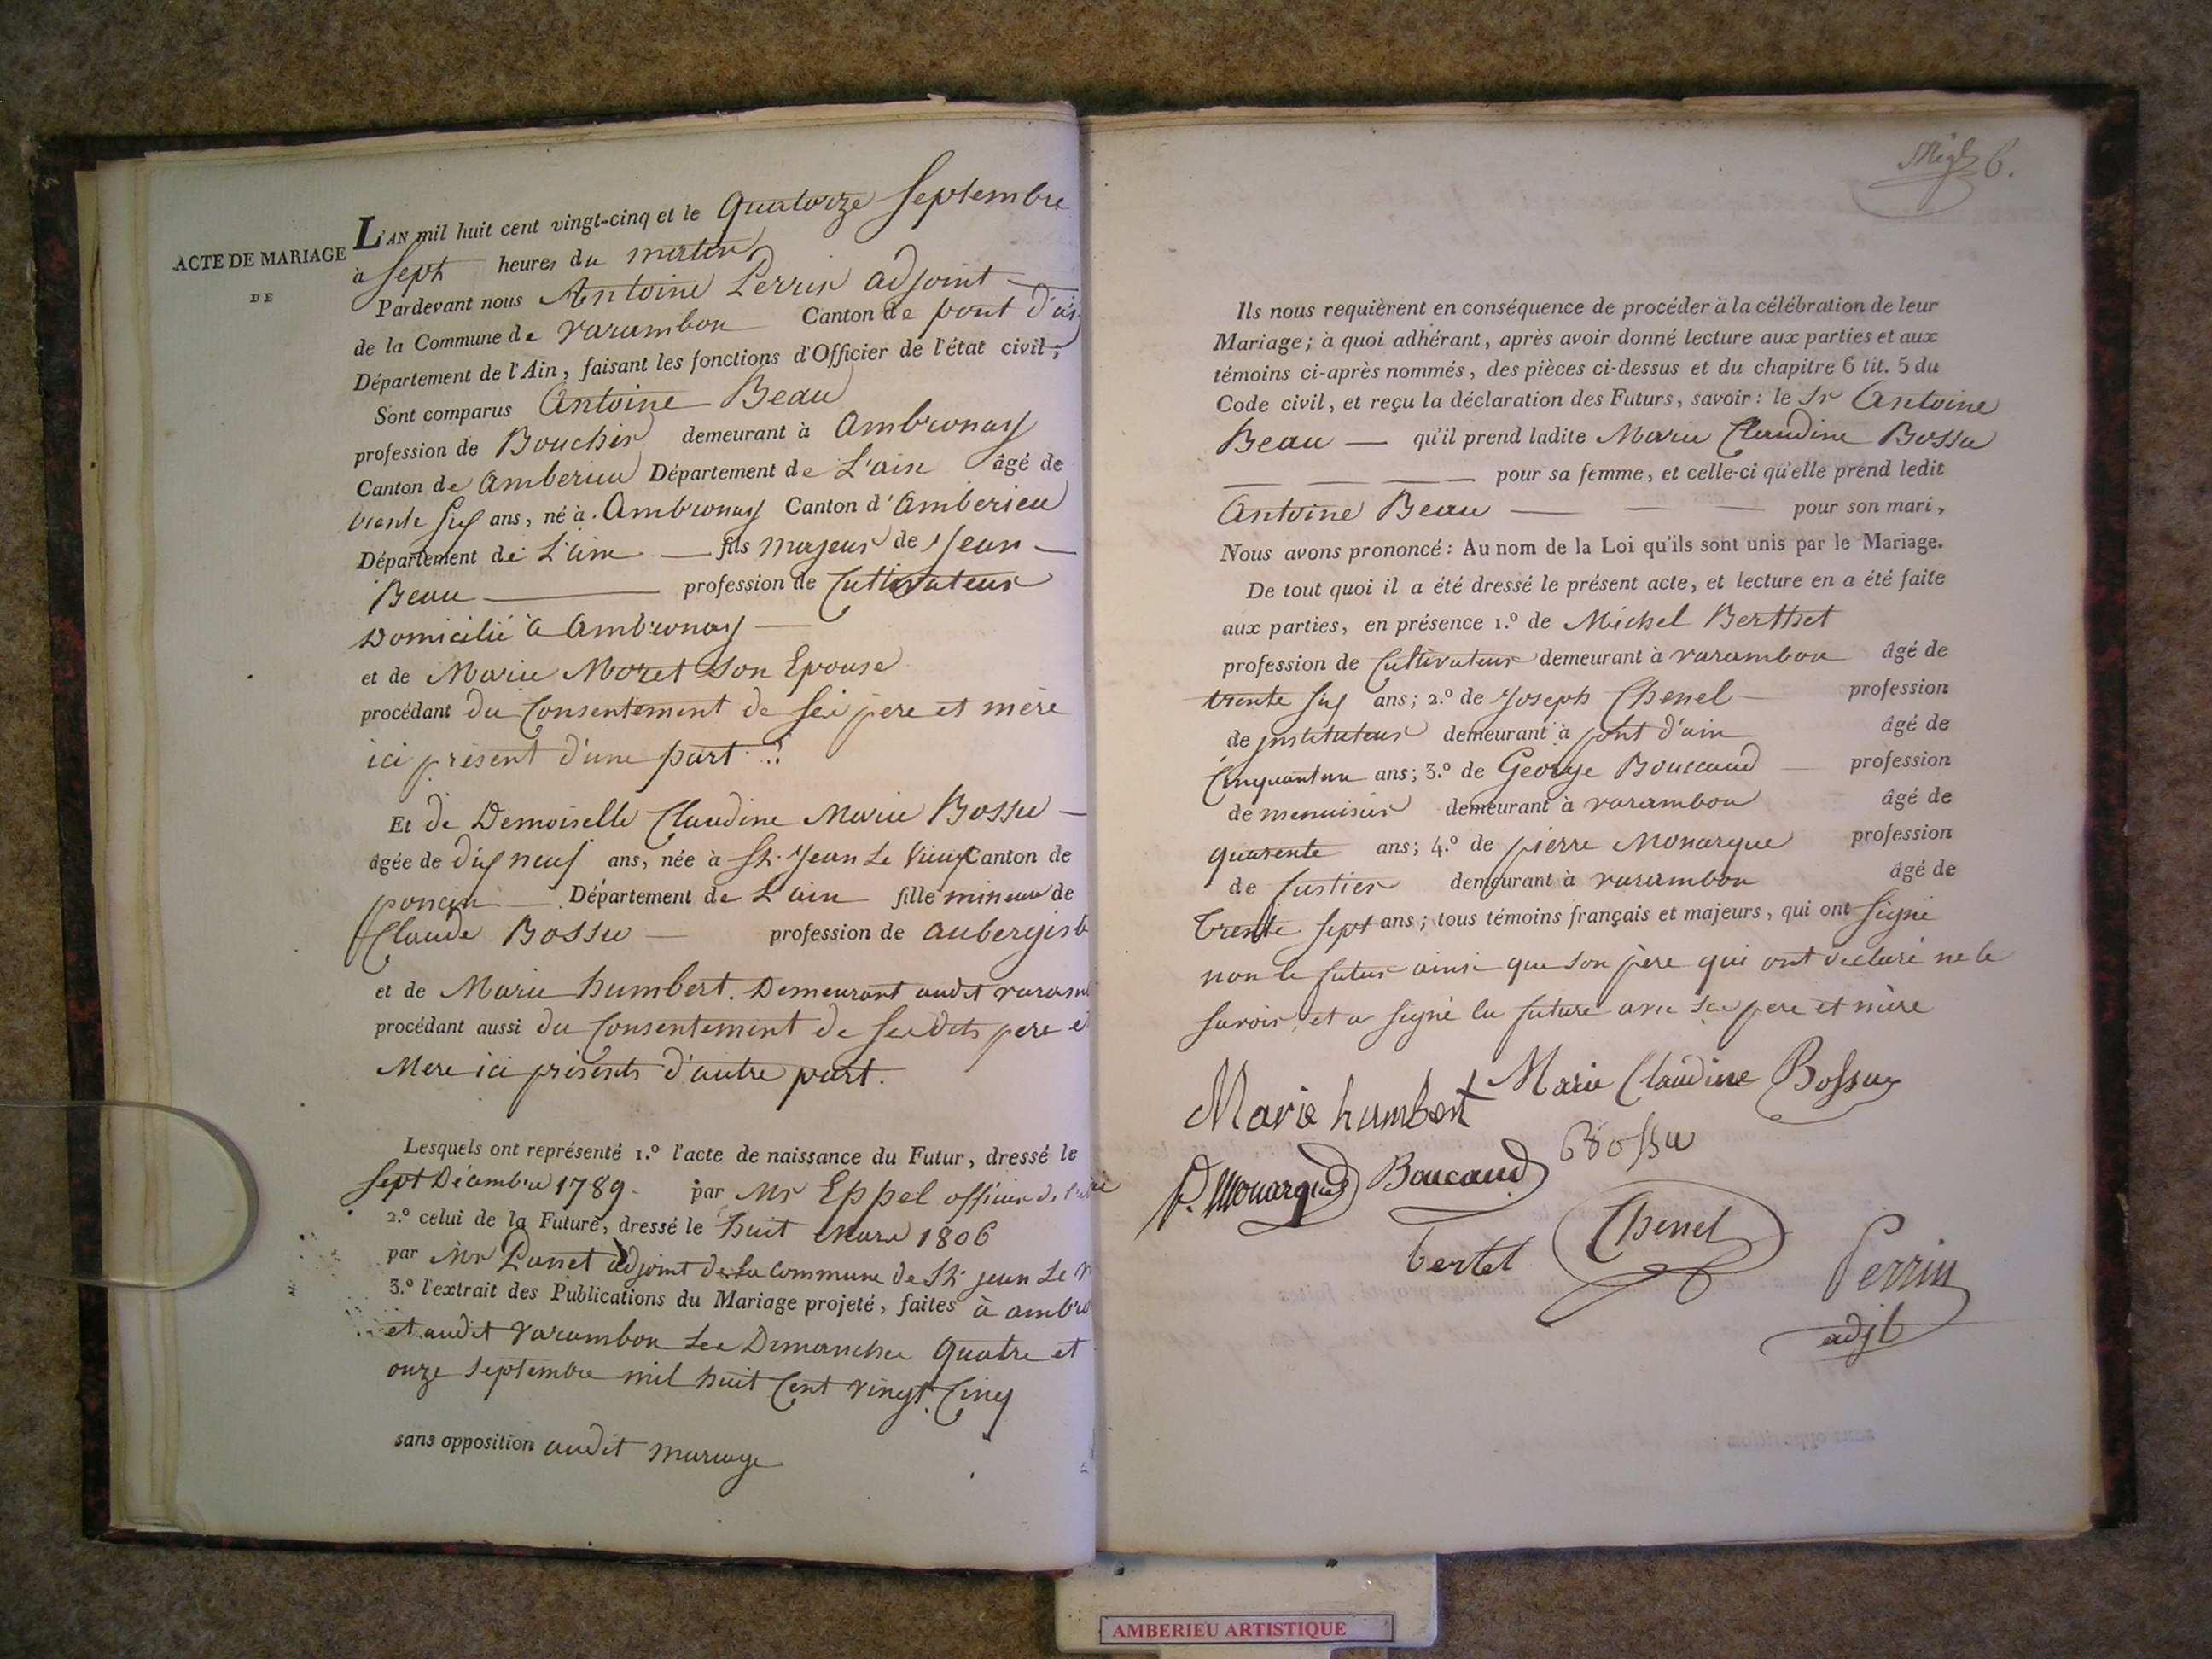 ACTE DE MARIAGE
DE
L'AN mil huit cent vingt-cinq et le Quatorze Septembre
à Sept heures du matin
Pardevant nous Antoine Perrin adjoint
de la Commune de varambon Canton de pont d'ain
Département de l'Ain, faisant les fonctions d'Officier de l'état civil;
Sont comparus Antoine Beau
profession de Boucher demeurant à Ambronay
Canton de Amberieu Département de L'ain âgé de
trente six ans, né à Ambronay Canton d'Amberieu
Département de L'ain fils majeur de Jean
Beau profession de Cultivateur
Domicilié à Ambronay
et de Marie Moret son Epouse
procédant du Consentement de ses pere et mère
ici présent d'une part
Et de Demoiselle Claudine Marie Bossu
âgée de dix neuf ans, née à St. Jean Le Vieux Canton de
poncin Département de L'ain fille mineure de
Claude Bossu profession de aubergiste
et de Marie humbert. Demeurant audit varam
procédant aussi du Consentement de ses dits pere et
Mere ici présents d'autre part.
Lesquels ont représenté 1.° l'acte de naissance du Futur, dressé le
sept Décembre 1789. par Mr Eppel officier de
2.° celui de la Future, dressé le huit Mars 1806
par Mr Punet adjoint de la Commune de St. jean Le v
3.° l'extrait des Publications du Mariage projeté, faites à ambro
et audit varambon les Dimanches quatre et
onze septembre mil huit Cent vingt. Cinq
sans opposition audit mariage
6.
Ils nous requièrent en conséquence de procéder à la célébration de leur
Mariage; à quoi adhérant, après avoir donné lecture aux parties et aux
témoins ci-après nommés, des pièces ci-dessus et du chapitre 6 tit. 5 du
Code civil, et reçu la déclaration des Futurs, savoir: le Sr Antoine
Beau — qu'il prend ladite Marie Claudine Bossu
pour sa femme, et celle-ci qu'elle prend ledit
Antoine Beau — pour son mari,
Nous avons prononcé: Au nom de la Loi qu'ils sont unis par le Mariage.
De tout quoi il a été dressé le présent acte, et lecture en a été faite
aux parties, en présence 1.° de Michel Berthet
profession de Cultivateur demeurant à varambon âgé de
trente six ans; 2.° de Joseph Chenel profession
de instituteur demeurant à pont d'ain âgé de
Cinquante un ans; 3.° de George Bouccaud profession
de menuisier demeurant à varambon âgé de
quarente ans; 4.° de pierre Monarque profession
de justier demeurant à varambon âgé de
trente sept ans; tous témoins français et majeurs, qui ont signé
non le futur ainsi que son père qui ont déclaré ne le
savoir, et a signé la future avec ses pere et mère
Marie humbert Marie Claudine Bossu
Bossu
P. Monarque Boucaud
Chenel
bertet
Perrin
adjt
AMBERIEU ARTISTIQUE